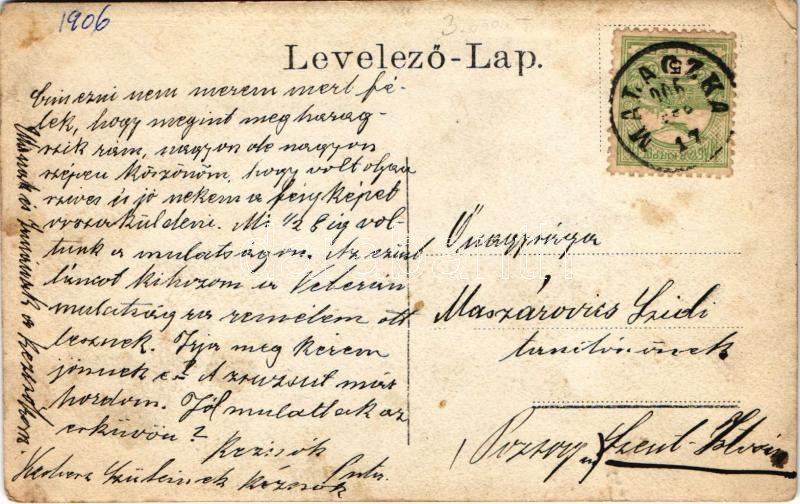 1906
Levelező-Lap.
MALACZKA
906
17
nem merem mert fé-
lek, hogy megint megharag-
szik rám, nagyon de nagyon
szépen köszönöm, hogy volt olyan
szives és jó nekem a fényképet
vissza küldeni. Mi 1/2 6 ig vol-
tunk a mulatságon. Az ezüst
láncot kihozom a Veterán
mulatságra remélem ott
lesznek. Írja meg kérem
jönnek e? A zsuzsut már
hordom. Jól mulattak az
esküvőn?
Kezicsók
Kedves Szüleinek kézcsók
Őnagysága
Maszárovics Szidi
tanítónőnek
Pozsony
Szent-István